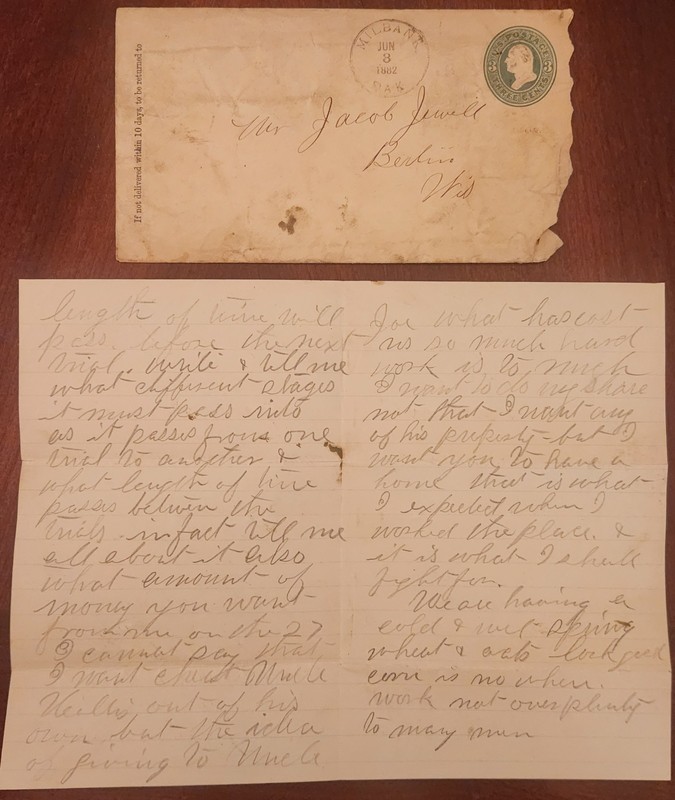 If not delivered within 10 days, to be returned to
MILBANK
JUN
3
1882
DAK
U.S. POSTAGE
3 3
THREE CENTS
Mr Jacob Jewell
Berlin
Wis
length of time will
pess. before the next
trial. write & tell me
what different stages
it must pass into
as it passes from one
trial to another &
what length of time
passes between the
trials. in fact tell me
all about it also
what amount of
money you want
from me on the 27
I cannot say that
I want cheat Uncle
out of his
own but the idea
of giving to Uncle
Joe what has cost
us so much hard
work is to much
I want to do my share
not that I want any
of his property but I
want you to have a
home that is what
I expected when I
worked the place. &
it is what I shall
fight for.
We are having a
cold & wet spring
wheat & oats look good
corn is no where.
work not over plenty
to many men